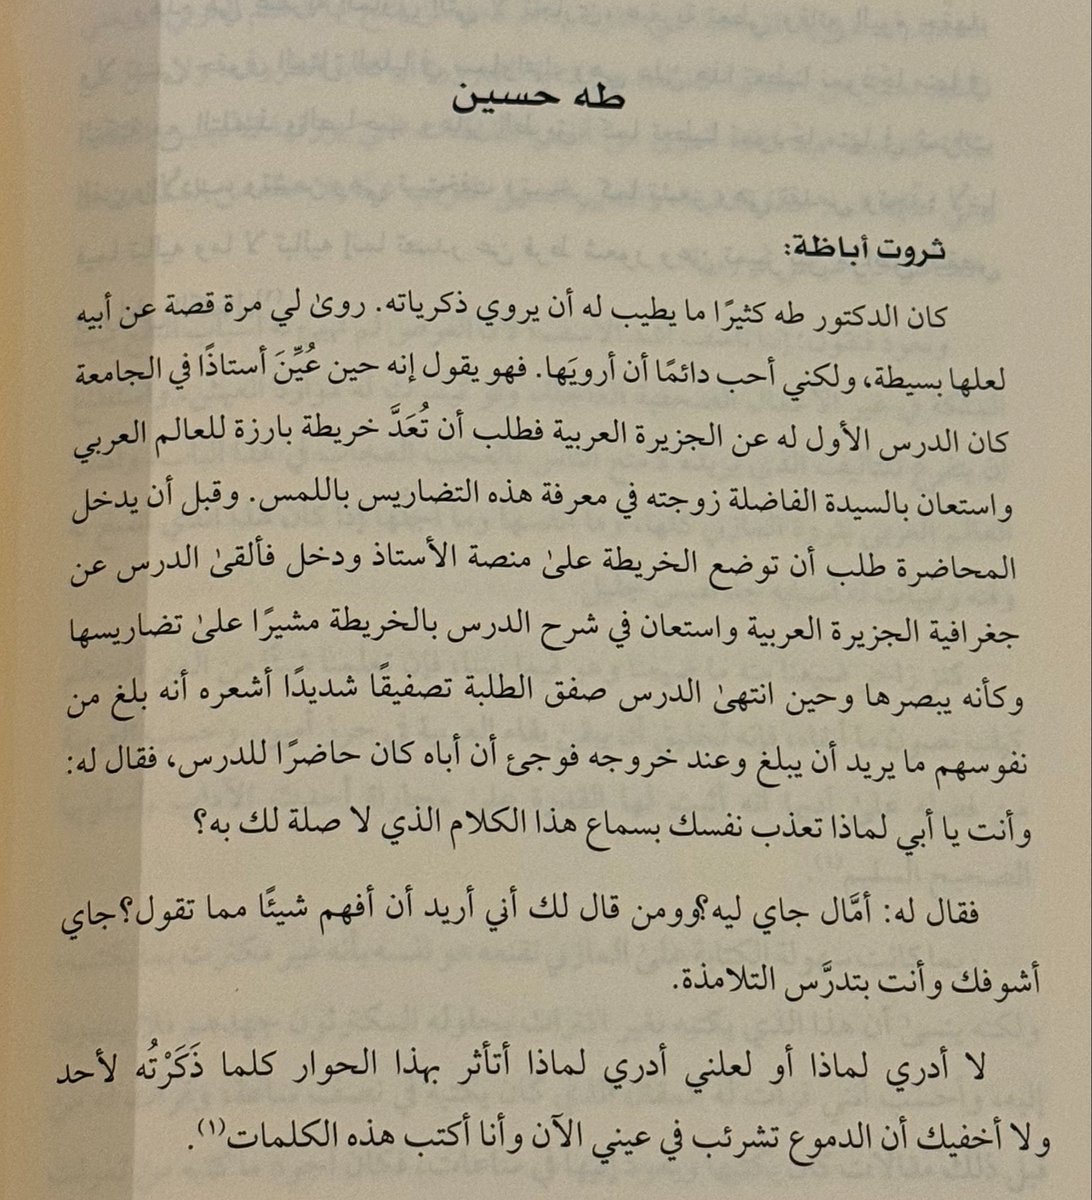 طه حسين
ثروت أباظة:
كان الدكتور طه كثيرًا ما يطيب له أن يروي ذكرياته. روىٰ لي مرة قصة عن أبيه
لعلها بسيطة، ولكني أحب دائمًا أن أرويَها. فهو يقول إنه حين عُيِّنَ أستاذًا في الجامعة
كان الدرس الأول له عن الجزيرة العربية فطلب أن تُعَدَّ خريطة بارزة للعالم العربي
واستعان بالسيدة الفاضلة زوجته في معرفة هذه التضاريس باللمس. وقبل أن يدخل
المحاضرة طلب أن توضع الخريطة علىٰ منصة الأستاذ ودخل فألقىٰ الدرس عن
جغرافية الجزيرة العربية واستعان في شرح الدرس بالخريطة مشيرًا علىٰ تضاريسها
وكأنه يبصرها وحين انتهىٰ الدرس صفق الطلبة تصفيقًا شديدًا أشعره أنه بلغ من
نفوسهم ما يريد أن يبلغ وعند خروجه فوجئ أن أباه كان حاضرًا للدرس، فقال له:
وأنت يا أبي لماذا تعذب نفسك بسماع هذا الكلام الذي لا صلة لك به؟
فقال له: أمَّال جاي ليه؟وومن قال لك أني أريد أن أفهم شيئًا مما تقول؟جاي
أشوفك وأنت بتدرَّس التلامذة.
لا أدري لماذا أو لعلني أدري لماذا أتأثر بهذا الحوار كلما ذَكَرْتُه لأحد
ولا أخفيك أن الدموع تشرئب في عيني الآن وأنا أكتب هذه الكلمات(١).